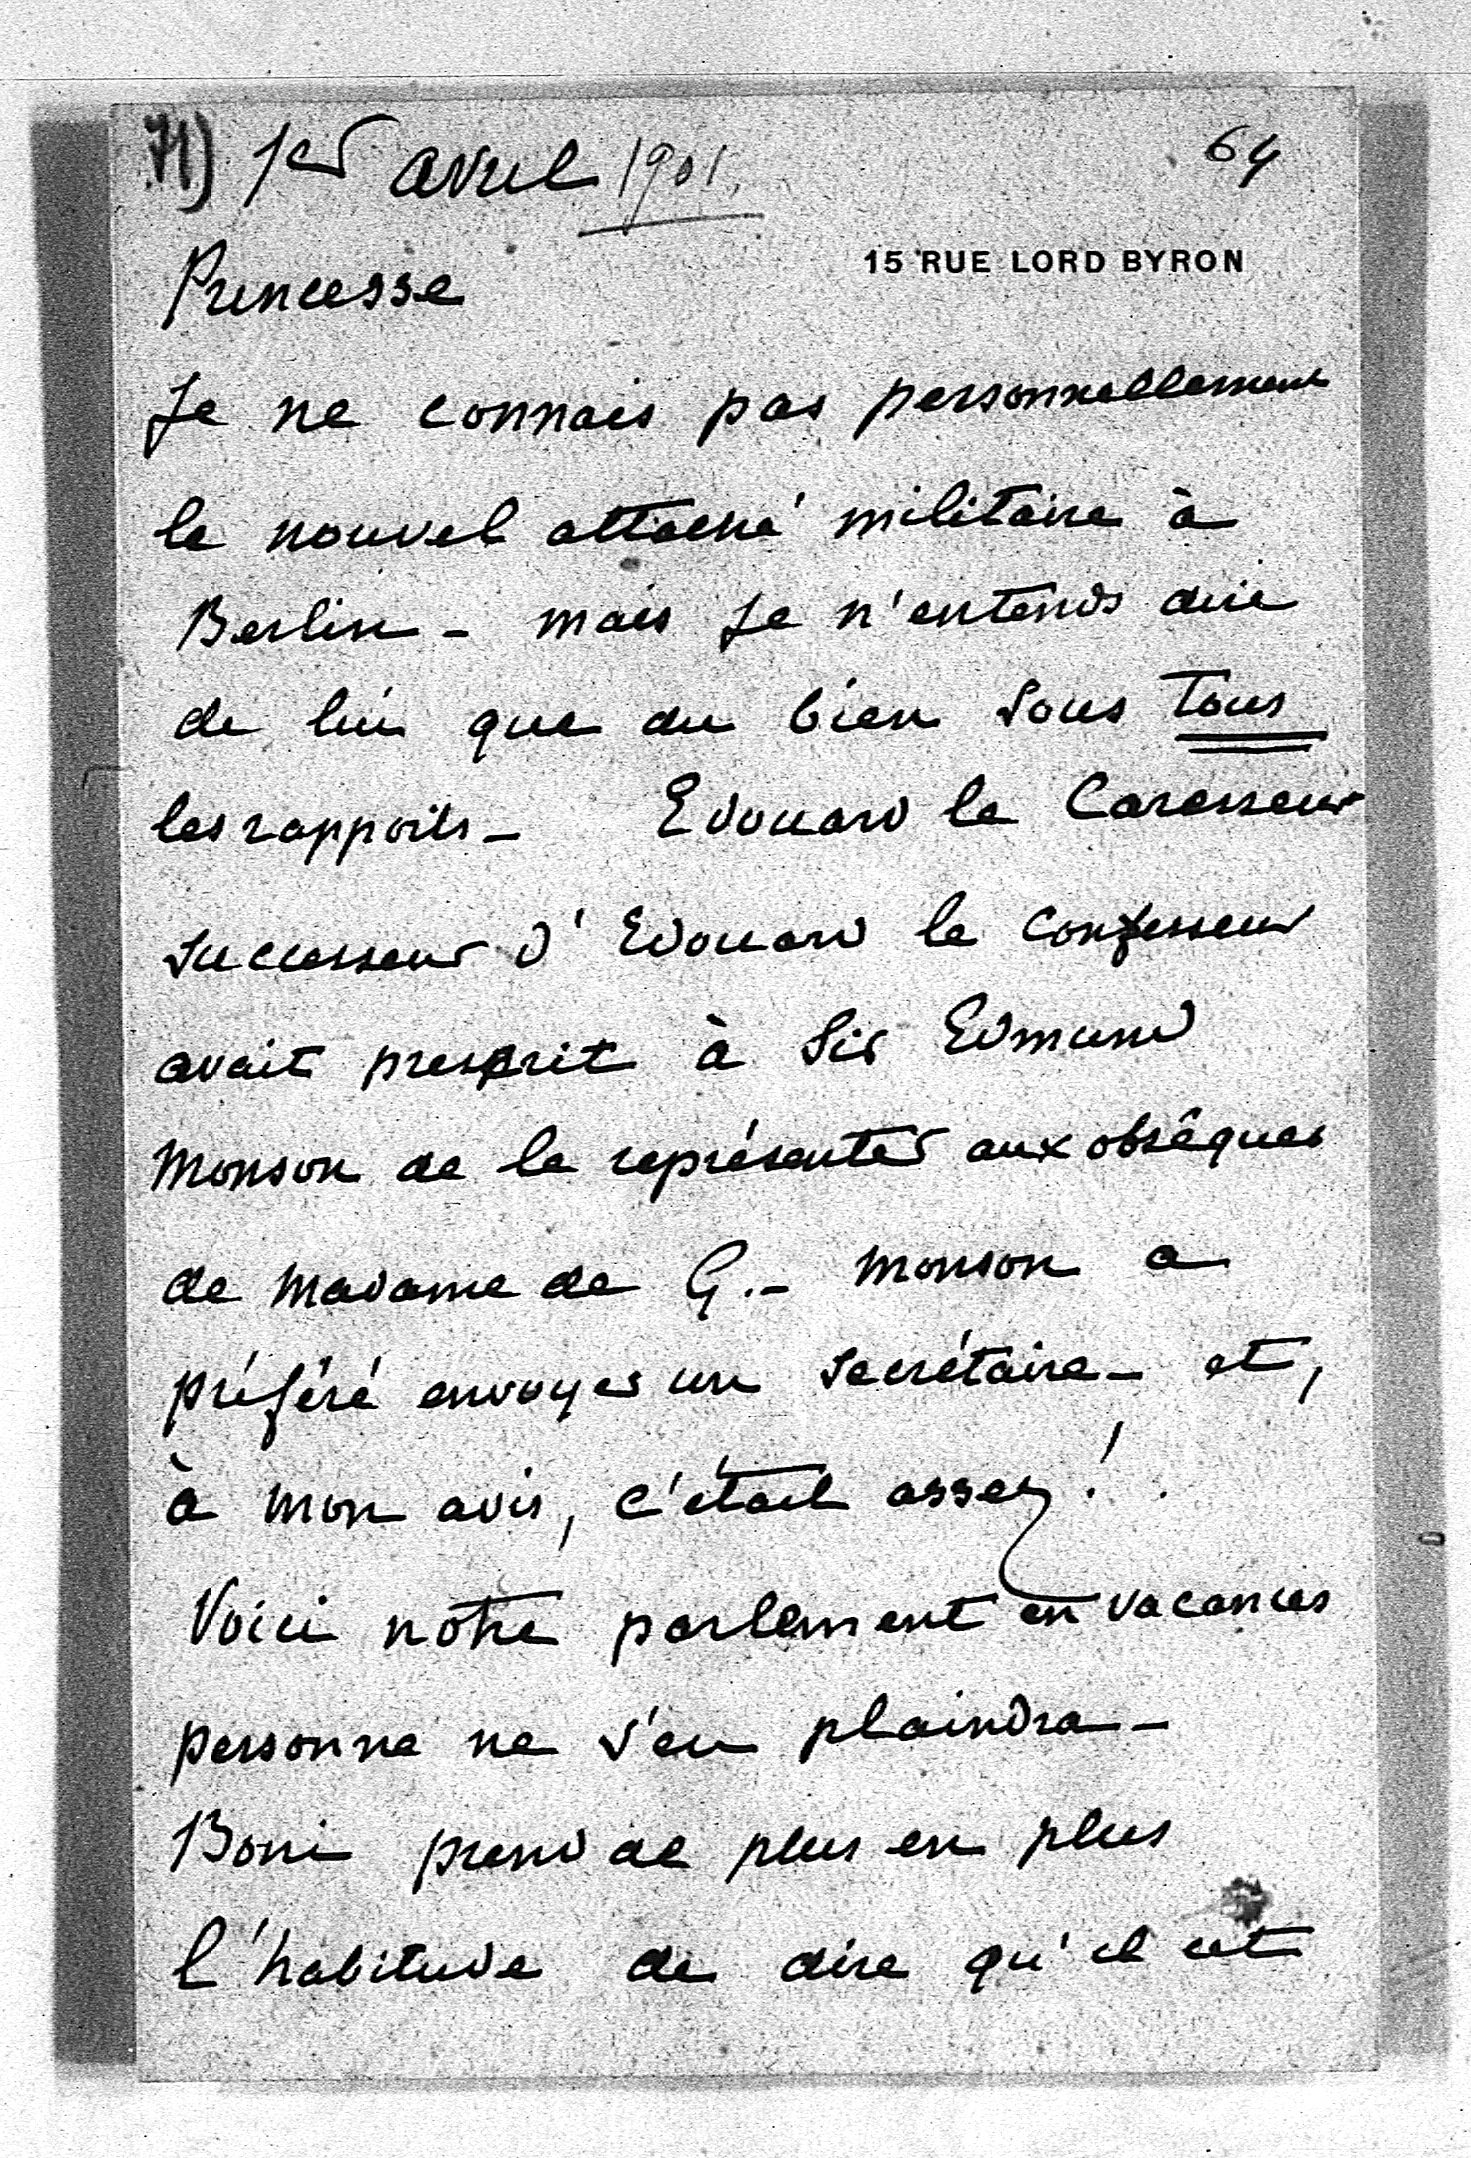 71) 1er avril 1901.
64
15 RUE LORD BYRON
Princesse
Je ne connais pas personnellement
le nouvel attaché militaire à
Berlin - mais je n'entends dire
de lui que du bien sous tous
les rapports - Edouard le Caresseur
successeur d'Edouard le Confesseur
avait prescrit à Sir Edmund
Monson de le représenter aux obsèques
de Madame de G. - Monson a
préféré envoyer un secrétaire - et,
à mon avis, c'était assez !
Voici notre parlement en vacances
personne ne s'en plaindra -
Boni prend de plus en plus
l'habitude de dire qu'il est